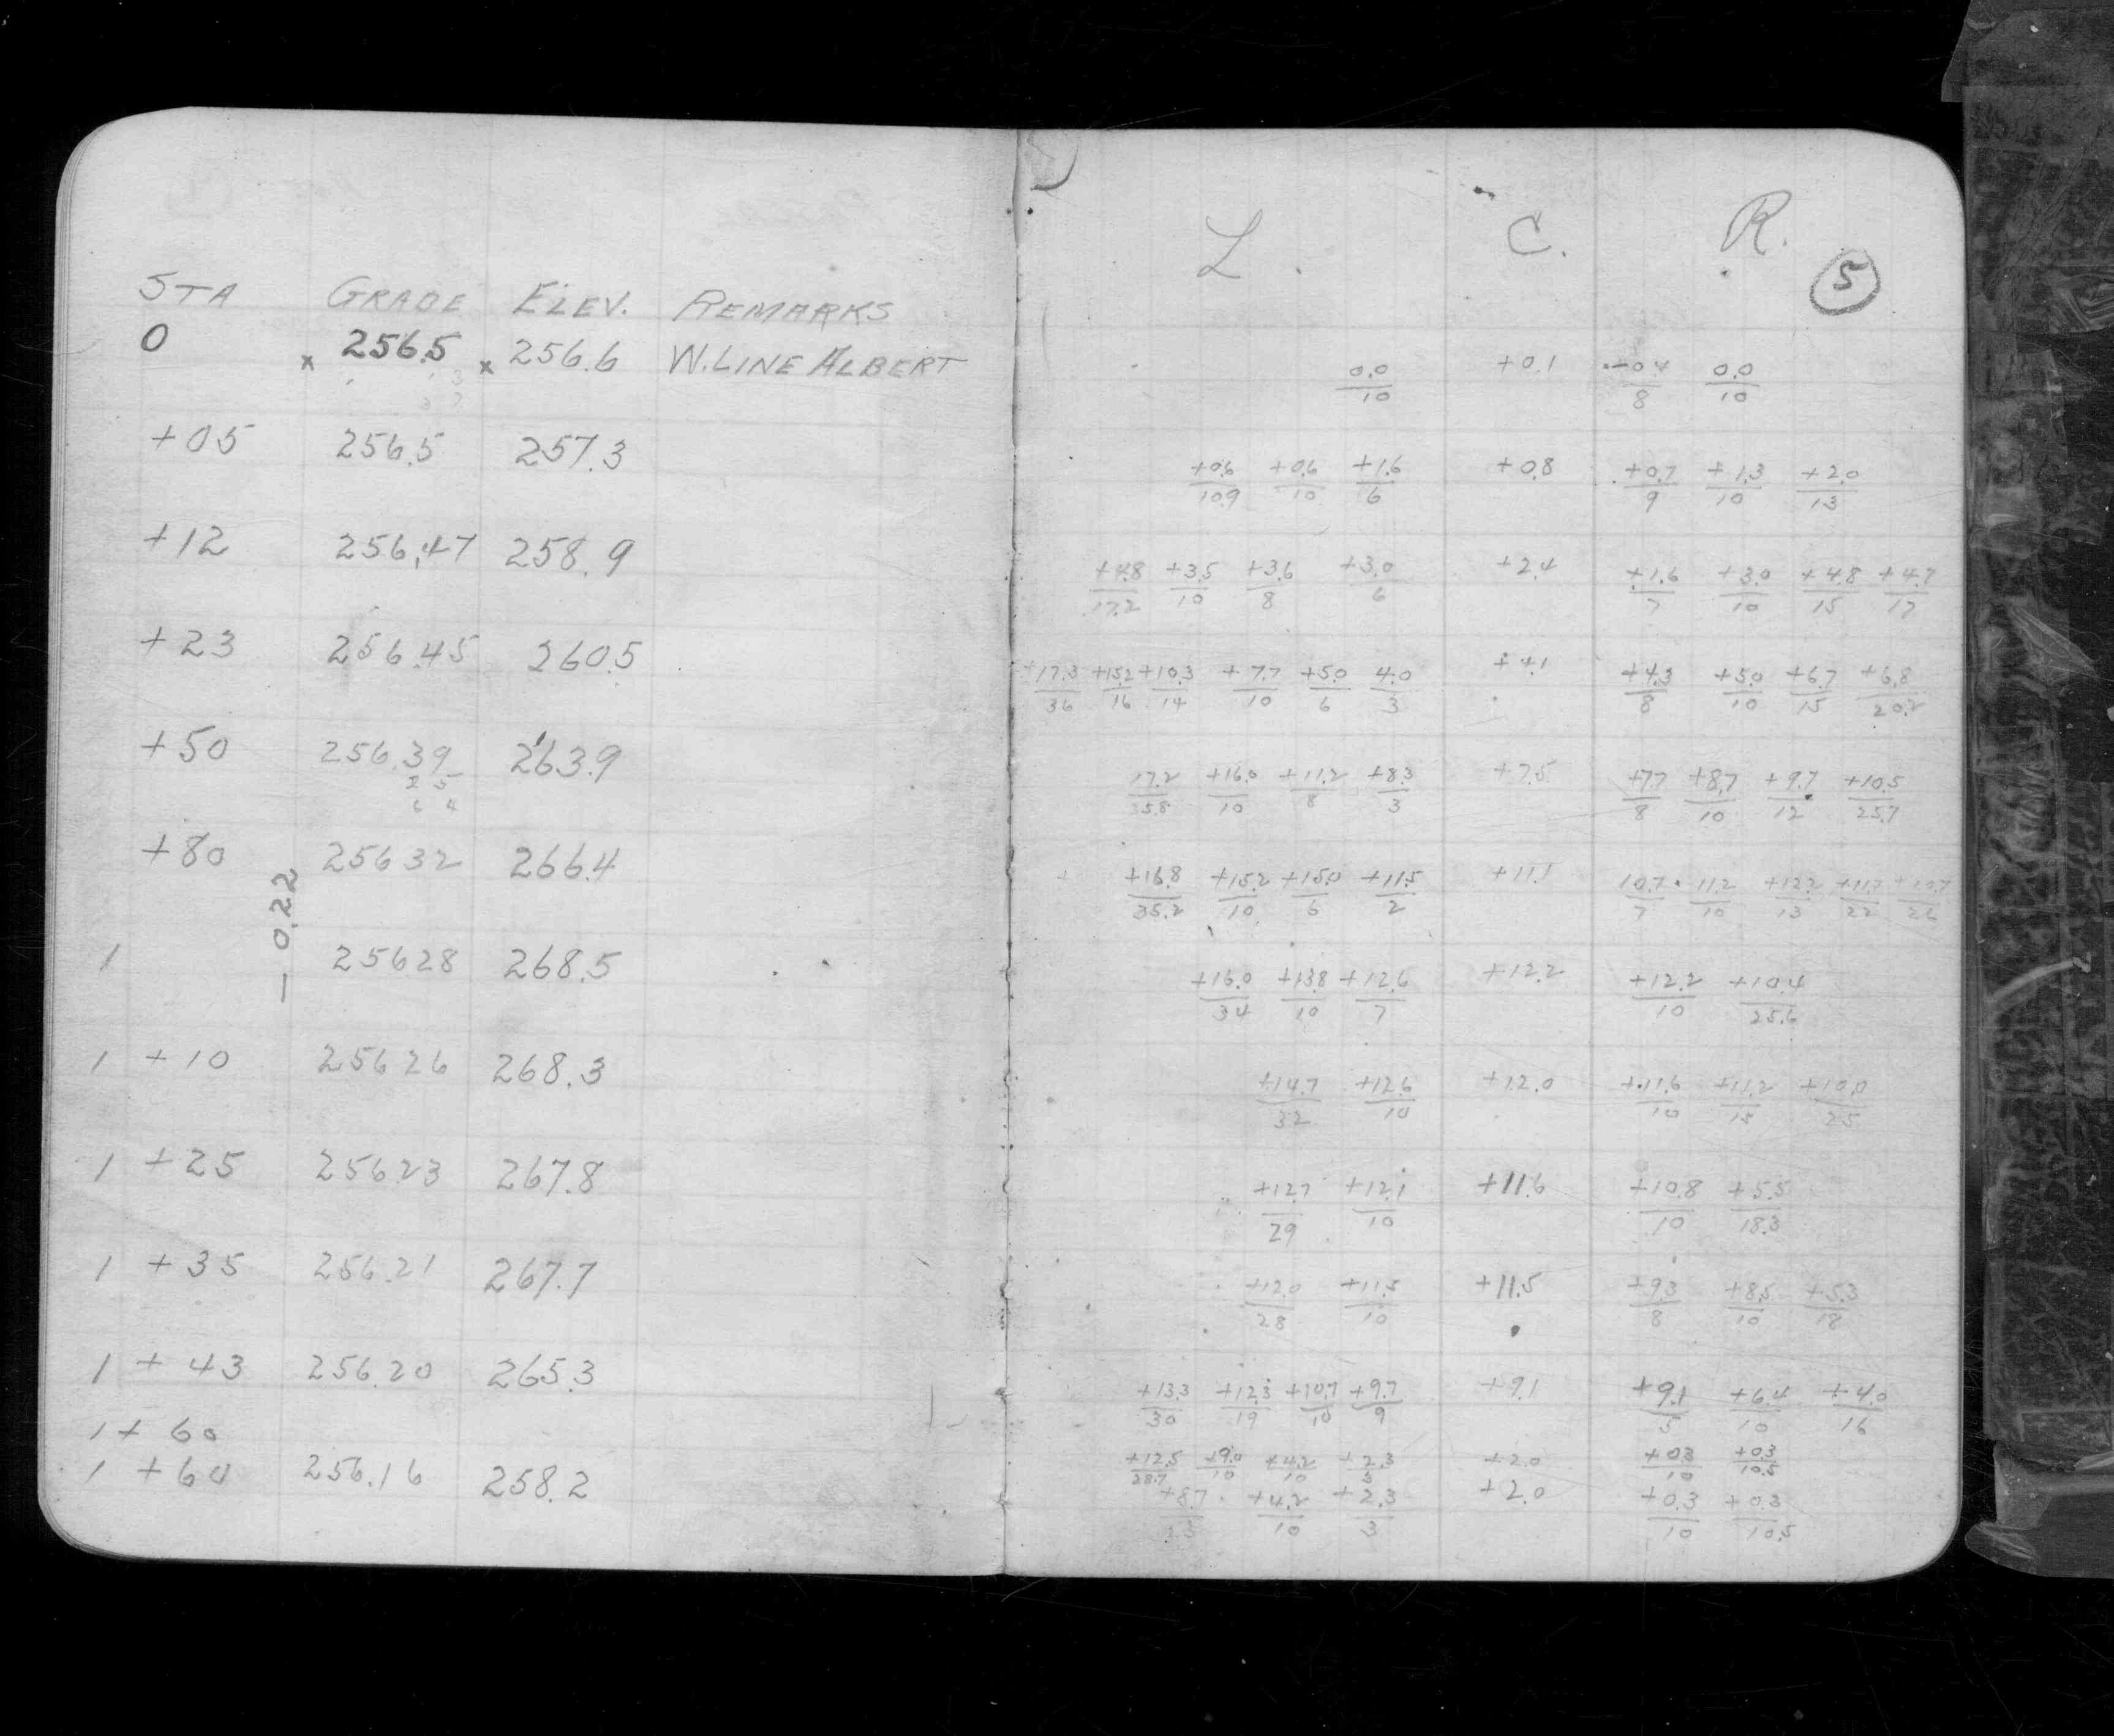 L. C. R.
5
STA GRADE ELEV. REMARKS
0 x 256.5 x 256.6 W. LINE ALBERT 0.0/10 +0.1 -0.4/8 0.0/10
+05 256.5 257.3 +0.6/10.9 +0.6/10 +1.6/6 +0.8 +0.7/9 +1.3/10 +2.0/13
+12 256.47 258.9 +4.8/17.2 +3.5/10 +3.6/8 +3.0/6 +2.4 +1.6/7 +3.0/10 +4.8/15 +4.7/17
+23 256.45 260.5 +17.3/36 +15.2/16 +10.3/14 +7.7/10 +5.0/6 4.0/3 +4.1 +4.3/8 +5.0/10 +6.7/15 +6.8/20.2
+50 256.39 263.9 17.2/35.8 +16.0/10 +11.2/8 +8.3/3 +7.5 +7.7/8 +8.7/10 +9.7/12 +10.5/25.7
2 5
6 4
+80 256 32 266.4 +16.8/35.2 +15.2/10 +15.0/6 +11.5/2 +11.1 10.7/7 11.2/10 +12.2/13 +11.7/22 +10.7/26
- 0.22
1 256 28 268.5 +16.0/34 +13.8/10 +12.6/7 +12.2 +12.2/10 +10.4/25.6
1 +10 256 26 268.3 +14.7/32 +12.6/10 +12.0 +11.6/10 +11.2/15 +10.0/25
1 +25 256.23 267.8 +12.7/29 +12.1/10 +11.6 +10.8/10 +5.5/18.3
1 +35 256.21 267.7 +12.0/28 +11.5/10 +11.5 +9.3/8 +8.5/10 +5.3/18
1 + 43 256.20 265.3 +13.3/30 +12.3/19 +10.7/10 +9.7/9 +9.1 +9.1/5 +6.4/10 +4.0/16
1 + 60 +12.5/28.7 +9.0/10 +4.2/10 +2.3/3 +2.0 +0.3/10 +0.3/10.5
1 +60 256.16 258.2 +8.7/23 +4.2/10 +2.3/3 +2.0 +0.3/10 +0.3/10.5